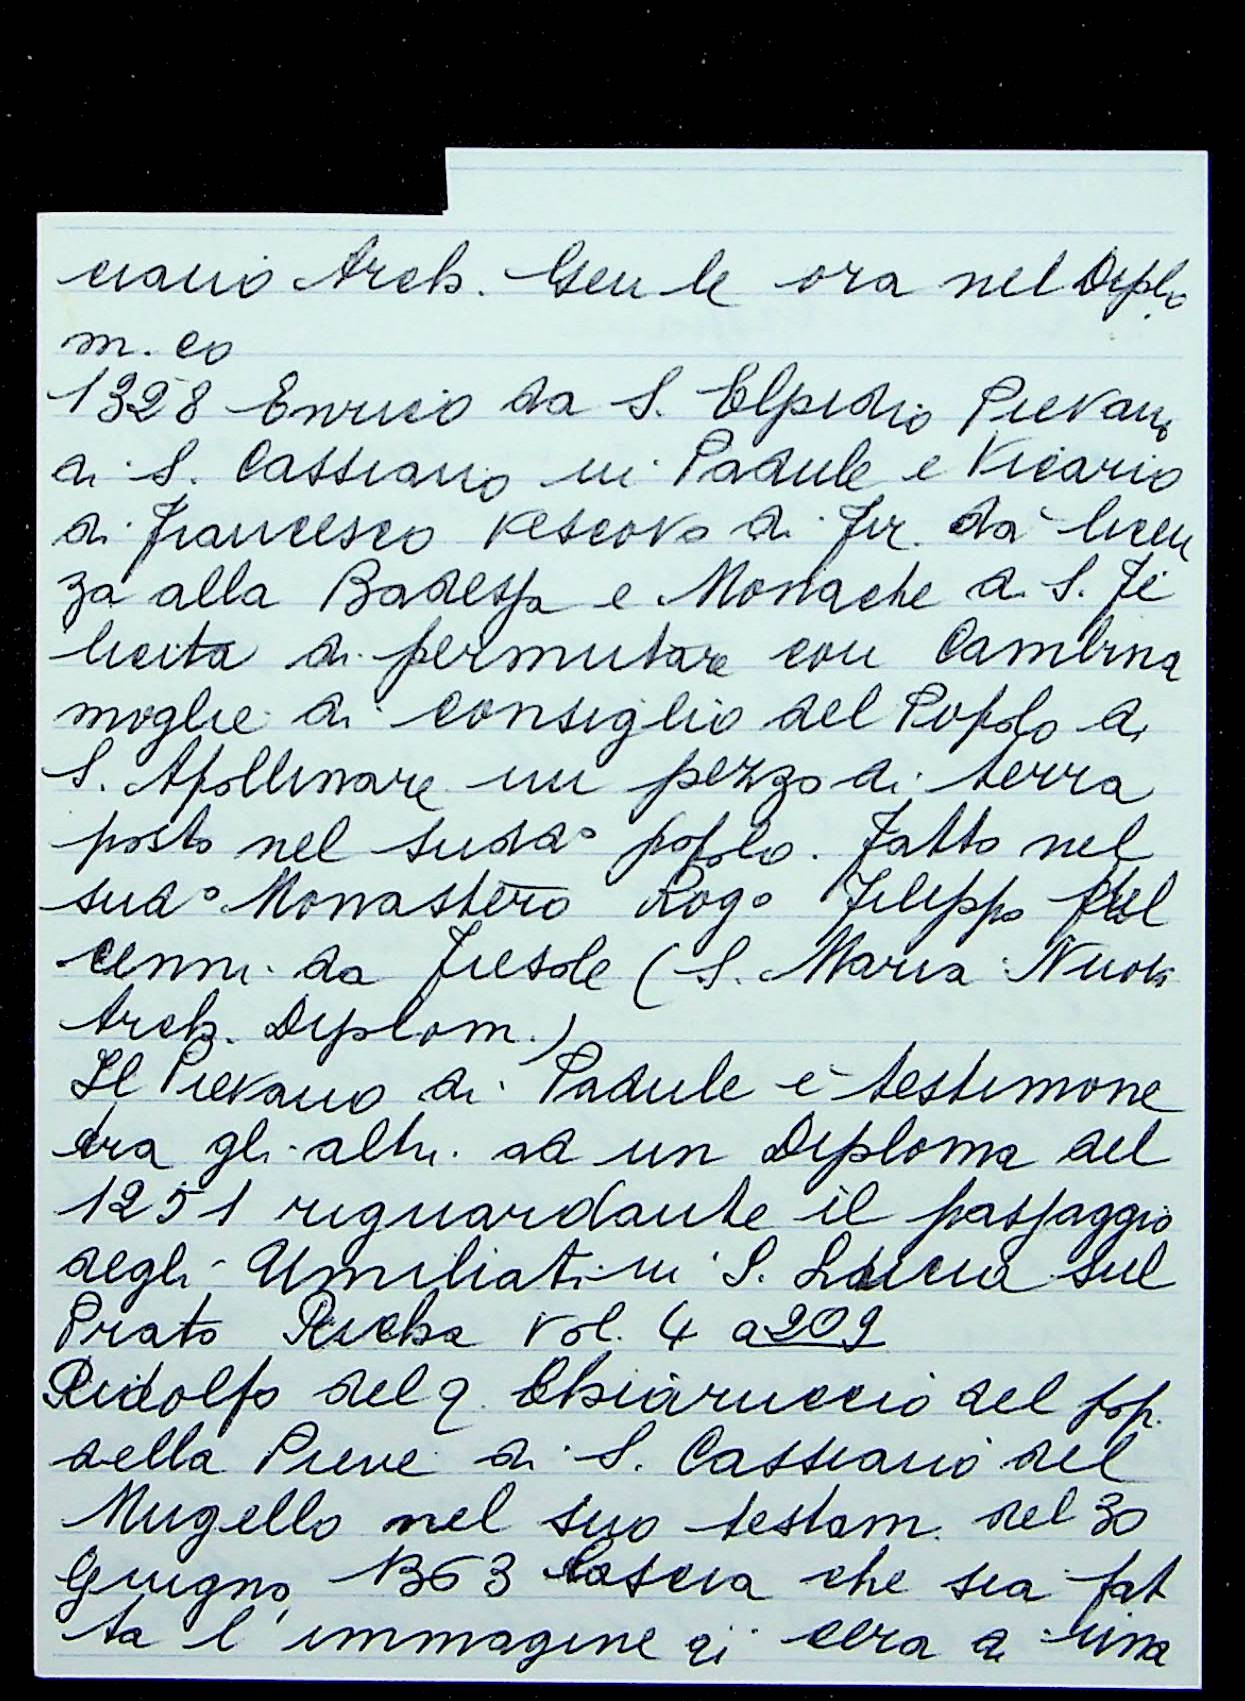 ciano Arch. Gen le ora nel Diplo
m. co
1328 Enrico da S. Elpidio Pievano
di S. Cassiano in Padule e Vicario
di Francesco Vescovo di Fir. dà licen
za alla Badessa e Monache di S. Fe
licita di permutare con Cambina
moglie di Consiglio del Popolo di
S. Apollinare un pezzo di terra
posto nel sudd° popolo. Fatto nel
sud° Monastero Rog° Filippo
cenni da Fiesole (S. Maria Nuova
Arch. Diplom.)
Il Pievano di Padule è testimone
tra gli altri ad un Diploma del
1251 riguardante il passaggio
degli Umiliati in S. Lucia sul
Prato Richa Vol. 4 a 209
Ridolfo del q. Chiaruccio del pop.
della Pieve di S. Cassiano del
Mugello nel suo testam. del 30
Giugno 1363 lascia che sia fat
ta l'immagine di cera a